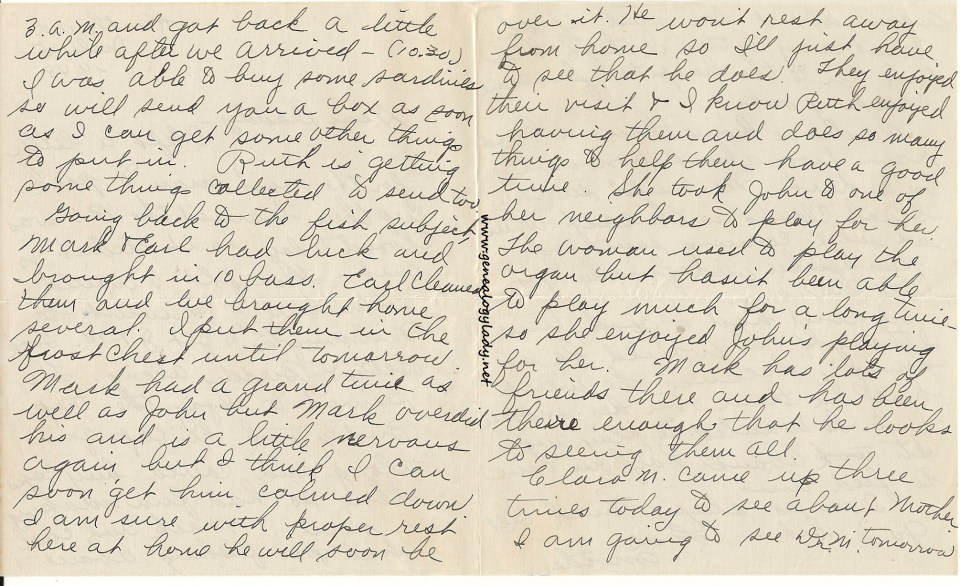 3. a.m. and got back a little
while after we arrived – (10:30)
I was able to buy some sardines
so will send you a box as soon
as I can get some other things
to put in. Ruth is getting
some things collected to send too
Going back to the fish subject,
Mark & Earl had luck and
brought in 10 bass. Earl cleaned
them and we brought home
several. I put them in the
frost chest until tomorrow.
Mark had a grand time as
well as John but Mark overdid
his and is a little nervous
again but I think I can
soon get him calmed down
I am sure with proper rest
here at home he will soon be
over it. He won't rest away
from home so I'll just have
to see that he does. They enjoyed
their visit & I know Ruth enjoyed
having them and does so many
things to help them have a good
time. She took John to one of
her neighbors to play for her.
The woman used to play the
organ but hasn't been able
to play much for a long time –
so she enjoyed John's playing
for her. Mark has lots of
friends there and has been
there enough that he looks
to seeing them all.
Clara M. came up three
times today to see about Mother.
I am going to see Dr. M. tomorrow
www.genealogylady.net